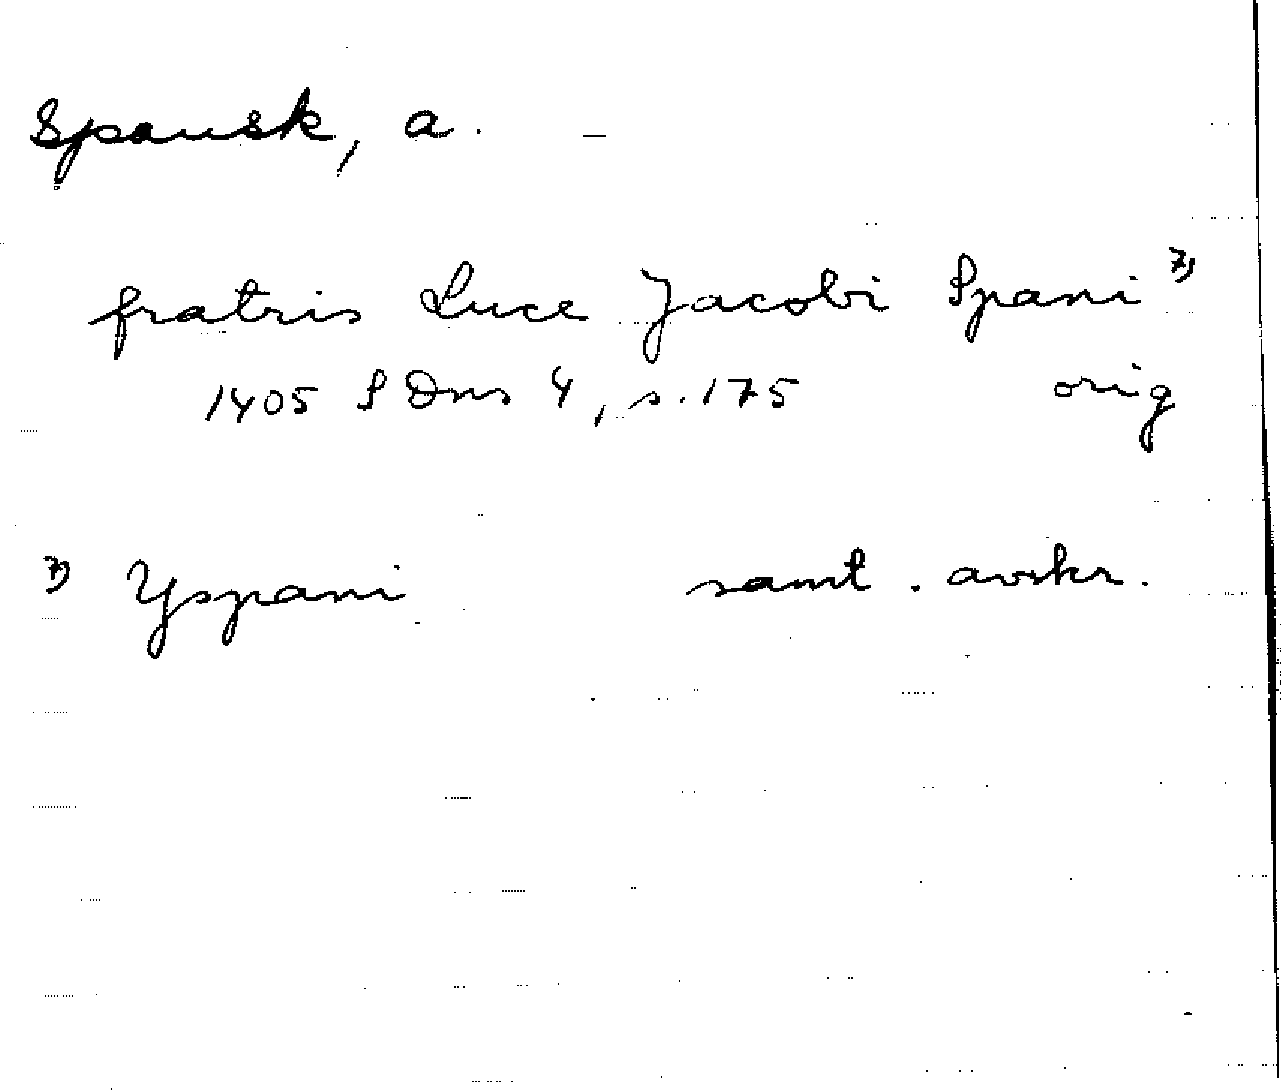 Spansk, a. —
fratris Luce Jacobi Spani 7)
1405 SDns 4, s. 175 orig
7) Yspani samt. avskr.